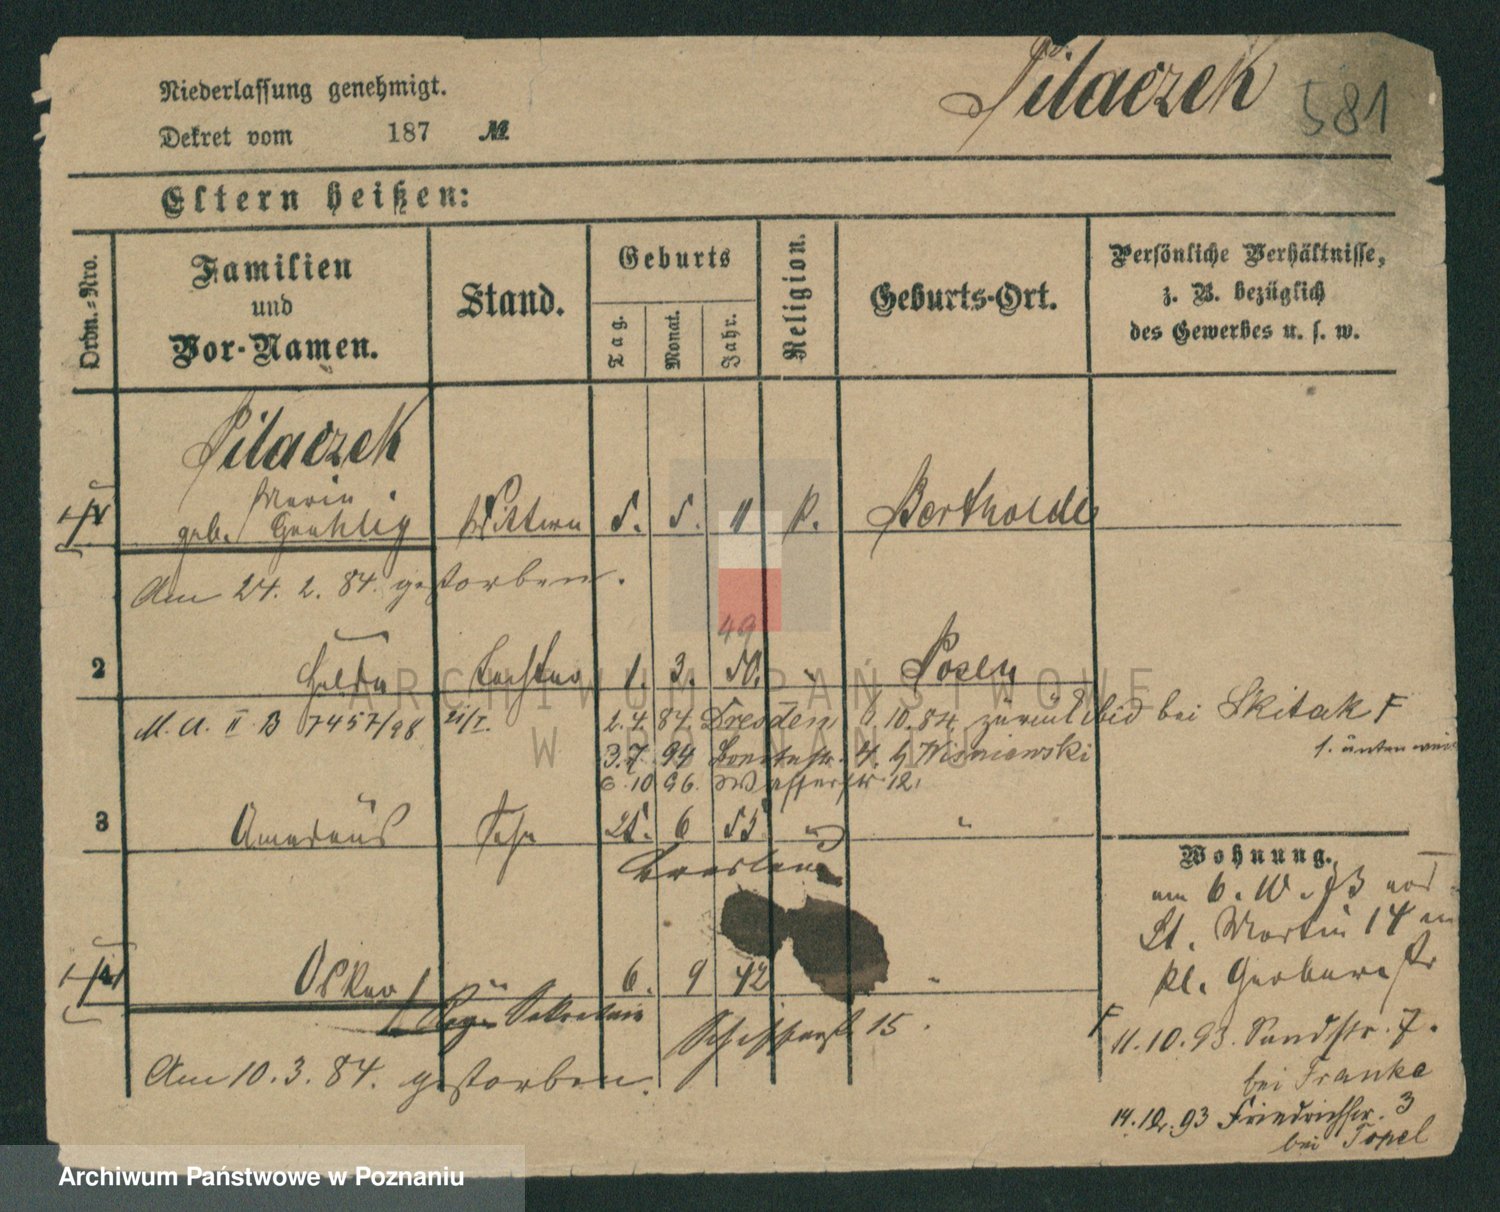 Pilaczek 581
Niederlassung genehmigt.
Dekret vom 187 №
Eltern heißen:
Ordn.-Nro.
Familien
und
Vor-Namen.
Stand.
Geburts
Tag.
Monat.
Jahr.
Religion.
Geburts-Ort.
Persönliche Verhältnisse,
z. B. bezüglich
des Gewerbes u. s. w.
Pilaczek
Marie
geb. 5. 5. 11 Bertholde
Am 24. 2. 84. gestorben.
49
2 Hulda Tochter 1. 3. 50. Posen
M. A. II B 7457/98 2. 4. 84. Dresden 1. 10. 84. zurück bei Skitak F
3. 7. 94 4. Wisniewski
6. 10 96. Wasserstr 12.
3 Amadeus Sohn 25. 6 53 "
Breslau
Wohnung.
am 6. 10. 93 von
St. Martin 14
kl. Gerberstr
4 Oskar " 6. 9 42 "
Reg. Sekretair 15.
F 11. 10. 93. Sandstr. 7.
bei Franke
Am 10. 3. 84. gestorben.
14. 10. 93 Friedrichstr. 3
bei Topel
ARCHIWUM PAŃSTWOWE
W POZNANIU
Archiwum Państwowe w Poznaniu